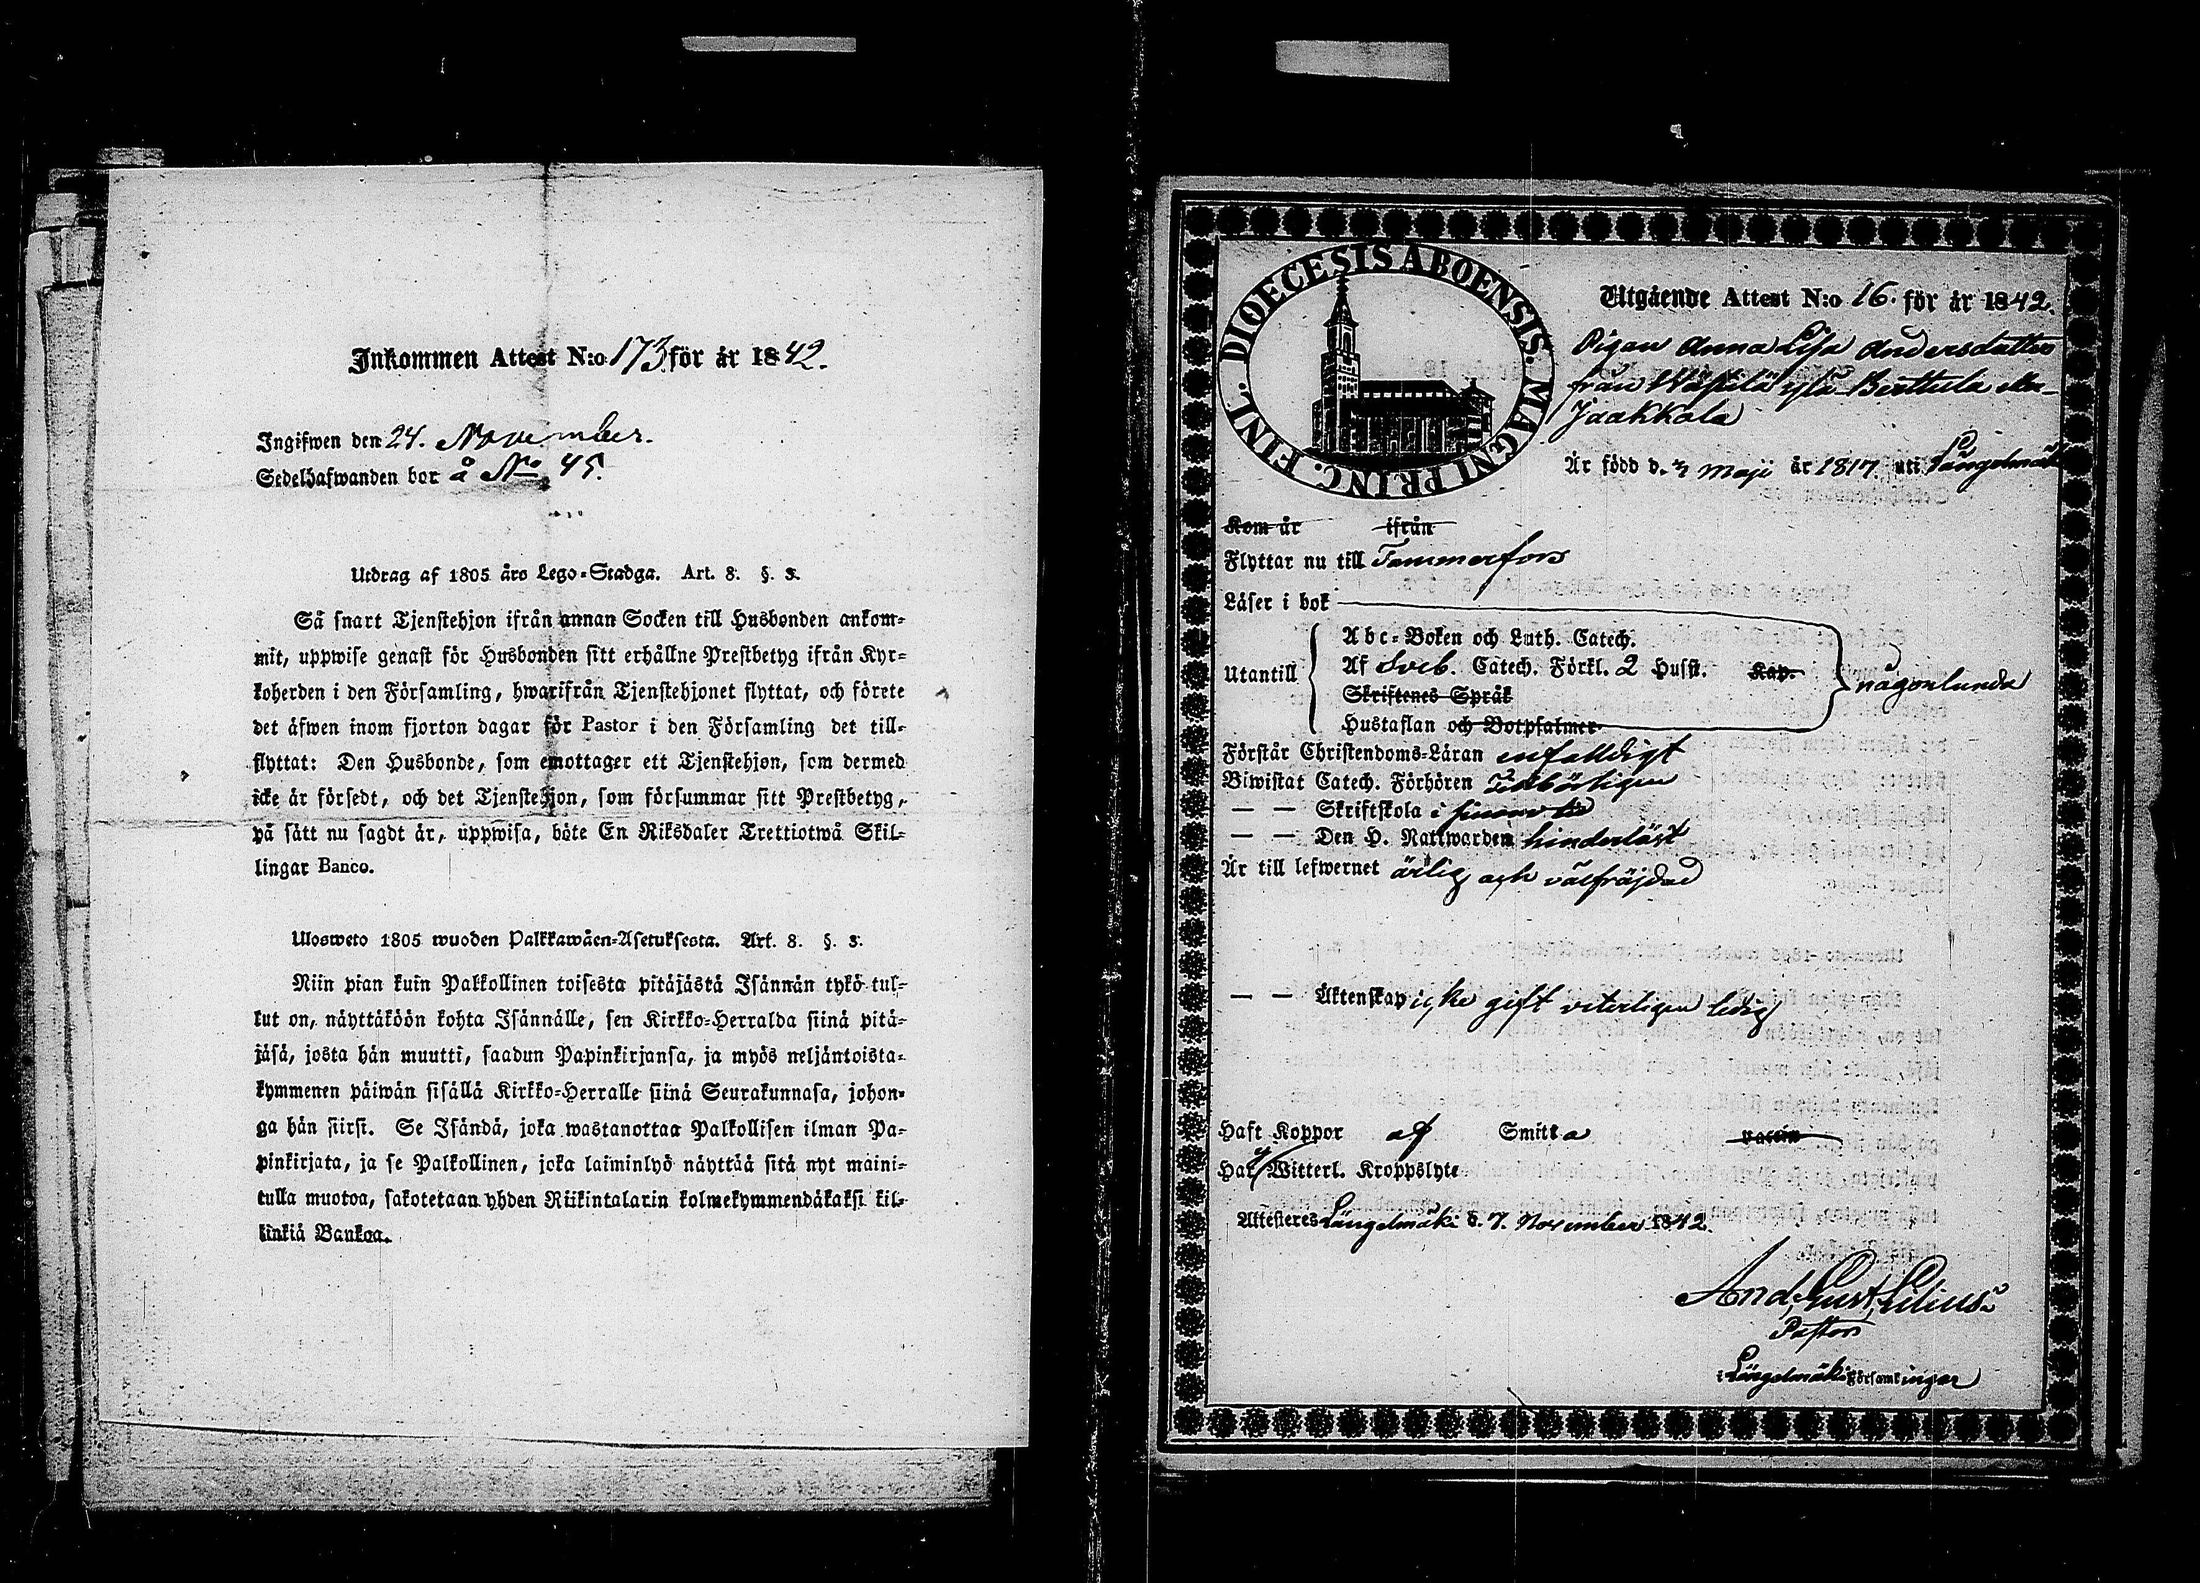 Inkommen Attest N:o 173 för år 1842.
Ingifwen den 24. November.
Sedelhafwanden bor å No 45.
Utdrag af 1805 års Lego-Stadga. Art. 8. §. 3.
Så snart Tjenstehjon ifrån annan Socken till Husbonden ankom-
mit, uppwise genast för Husbonden sitt erhållne Prestbetyg ifrån Kyr-
koherden i den Församling, hwarifrån Tjenstehjonet flyttat, och förete
det äfwen inom fjorton dagar för Pastor i den Församling det till-
flyttat: Den Husbonde, som emottager ett Tjenstehjon, som dermed
icke är försedt, och det Tjenstehjon, som försummar sitt Prestbetyg,
på sätt nu sagdt är, uppwisa, böte En Riksdaler Trettiotwå Skil-
lingar Banco.
Ulosweto 1805 wuoden Palkkawäen-Asetuksesta. Art. 8. §. 3.
Niin pian kuin Palkollinen toisesta pitäjästä Isännän tykö tul-
kut on, näyttäköön kohta Isännälle, sen Kirkko-Herralda siinä pitä-
jäsä, josta hän muutti, saadun Papinkirjansa, ja myös neljäntoista-
kymmenen päiwän sisällä Kirkko-Herralle siinä Seurakunnasa, johon-
ga hän siirsi. Se Isändä, joka wastanottaa Palkollisen ilman Pa-
pinkirjata, ja se Palkollinen, joka laiminlyö näyttää sitä nyt maini-
tulla muotoa, sakotetaan yhden Riikintalarin kolmekymmendäkaksi kil-
linkiä Bankoa.
DIOECESIS ABOENSIS. MAGNI PRINC. FINL.
Utgående Attest N:o 16. för år 1842.
Pigan Anna Lisa Andersdotter
från Wästilä by Berttula
Jaakkola
Är född d. Maji år 1817 uti Längelmäki
Kom år ifrån
Flyttar nu till Tammerfors
Läser i bok
Abc-Boken och Luth. Catech.
Utantill Af Sveb. Catech. Förkl. 2 Husst. Kap. någorlunda
Skriftenes Språk
Hustaflan och Botpsalmer
Förstår Christendoms-Läran enfaldigt
Biwistat Catech. Förhören Tilbörligen
— — Skriftskola i
— — Den H. Nattwarden hinderlöst
Är till lefwernet ärlig och välfräjdad
— — Äktenskap icke gift veterligen ledig
Haft Koppor af Smitta vaccin
Har ej Witterl. Kroppslyte
Attesteres Längelmäki d. 7. November 1842.
And. Gust. Lilius.
Pastor
i Längelmäki Församlingar